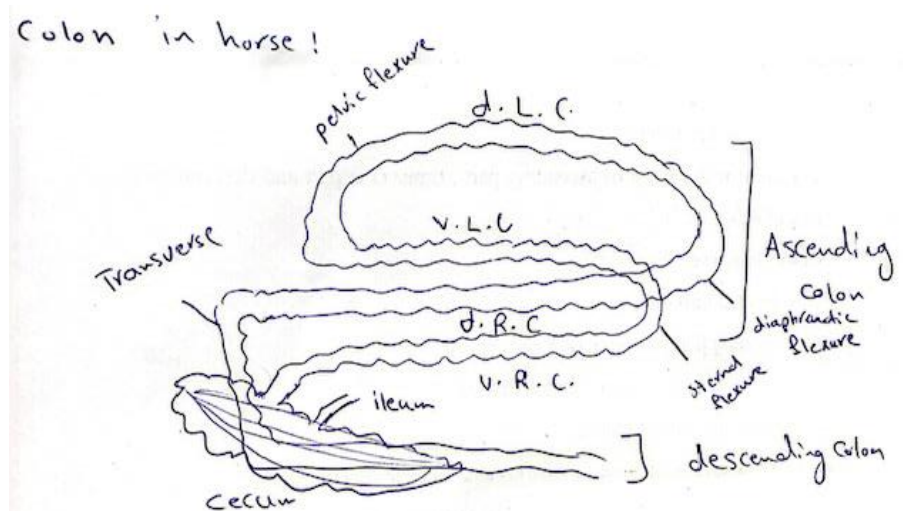 Colon in horse!
pelvic flexure
d. L. C.
V. L. C
Transverse
Ascending
Colon
diaphramatic
flexure
d. R. C
V. R. C.
sternal
flexure
ileum
descending Colon
Cecum